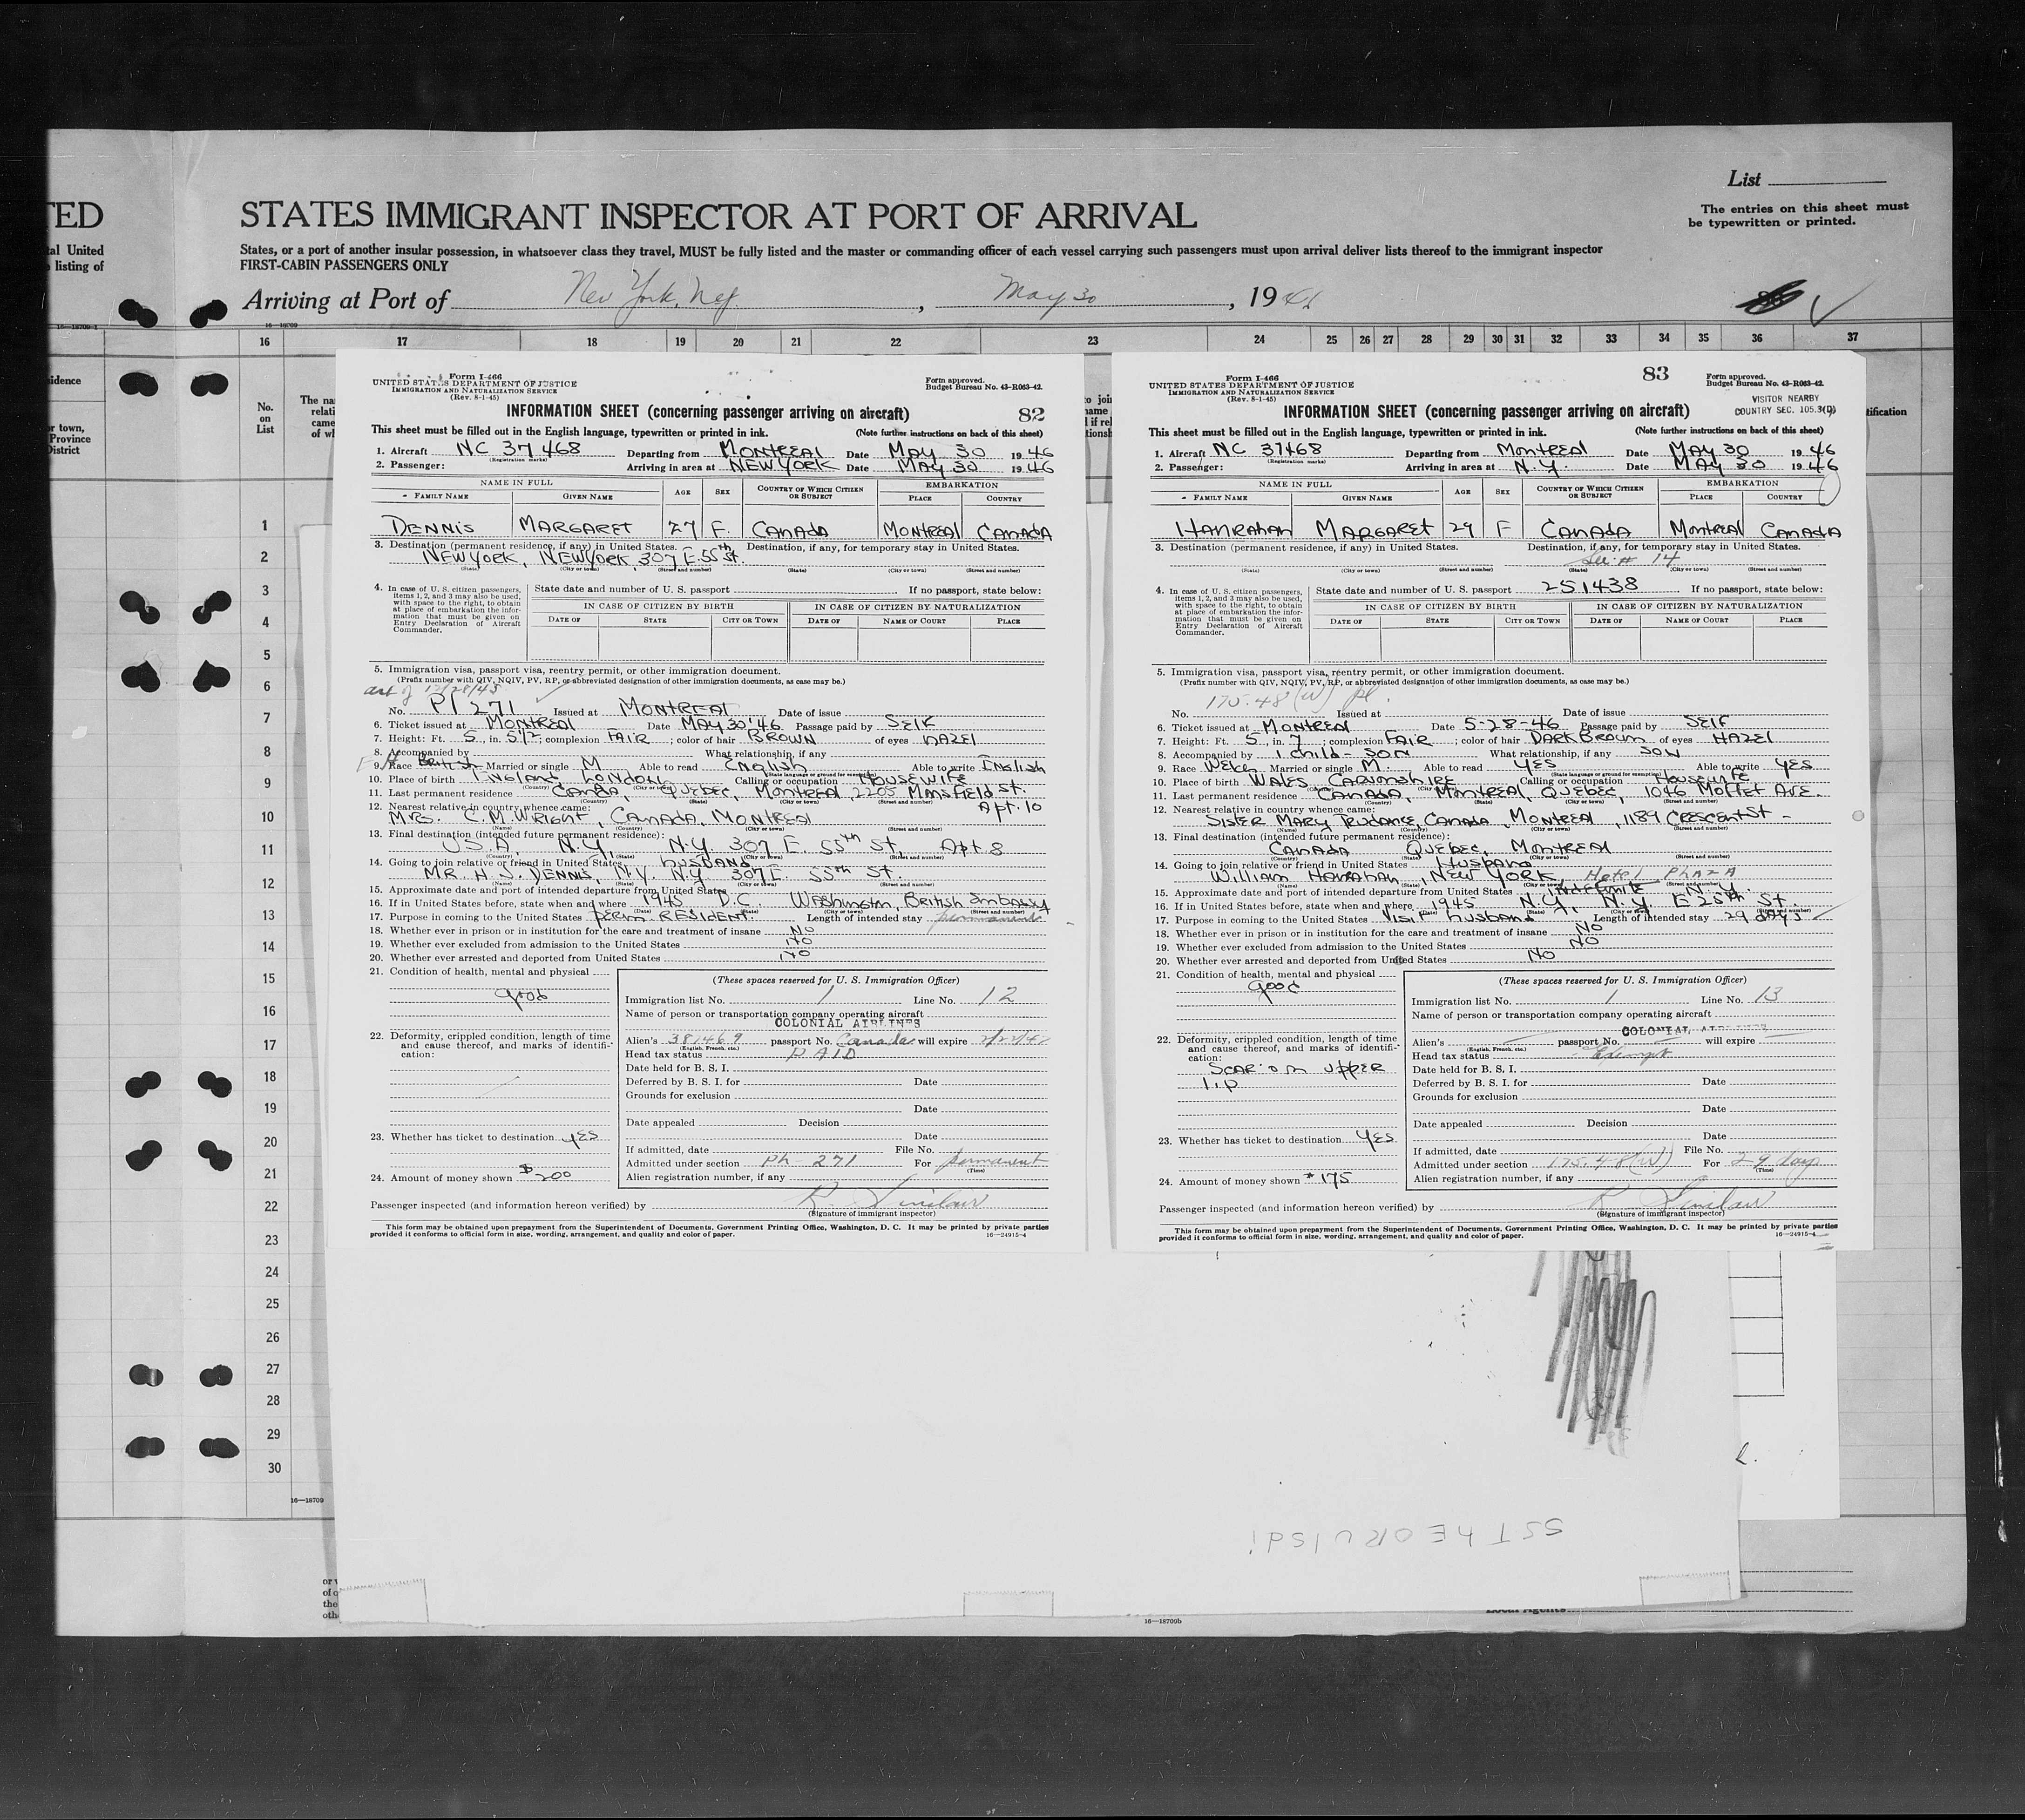 List
TED
STATES IMMIGRANT INSPECTOR AT PORT OF ARRIVAL
The entries on this sheet must
be typewritten or printed.
tal United
listing of
States, or a port of another insular possession, in whatsoever class they travel, MUST be fully listed and the master or commanding officer of each vessel carrying such passengers must upon arrival deliver lists thereof to the immigrant inspector
FIRST-CABIN PASSENGERS ONLY
Arriving at Port of New York, May 30, 19
16—18709
16 17 18 19 20 21 22 23 24 25 26 27 28 29 30 31 32 33 34 35 36 37
No.
on
List
1
2
3
4
5
6
7
8
9
10
11
12
13
14
15
16
17
18
19
20
21
22
23
24
25
26
27
28
29
30
Form I-466
UNITED STATES DEPARTMENT OF JUSTICE
IMMIGRATION AND NATURALIZATION SERVICE
(Rev. 8-1-45)
Form approved.
Budget Bureau No. 43-R063-42.
INFORMATION SHEET (concerning passenger arriving on aircraft) 82
This sheet must be filled out in the English language, typewritten or printed in ink. (Note further instructions on back of this sheet)
1. Aircraft NC 37468 Departing from MONTREAL Date MAY 30 1946
(Registration marks)
2. Passenger: Arriving in area at NEW YORK Date MAY 30 1946
NAME IN FULL AGE SEX COUNTRY OF WHICH CITIZEN OR SUBJECT EMBARKATION
FAMILY NAME GIVEN NAME PLACE COUNTRY
DENNIS MARGARET 27 F. CANADA MONTREAL CANADA
3. Destination (permanent residence, if any) in United States. Destination, if any, for temporary stay in United States.
NEW YORK, NEW YORK, 307 E. 55th St.
(State) (City or town) (Street and number) (State) (City or town) (Street and number)
4. In case of U. S. citizen passengers, items 1, 2, and 3 may also be used, with space to the right, to obtain at place of embarkation the information that must be given on Entry Declaration of Aircraft Commander.
State date and number of U. S. passport If no passport, state below:
IN CASE OF CITIZEN BY BIRTH IN CASE OF CITIZEN BY NATURALIZATION
DATE OF STATE CITY OR TOWN DATE OF NAME OF COURT PLACE
5. Immigration visa, passport visa, reentry permit, or other immigration document.
(Prefix number with QIV, NQIV, PV, RP, or abbreviated designation of other immigration documents, as case may be.)
No. 271 Issued at MONTREAL Date of issue
6. Ticket issued at MONTREAL Date MAY 30 '46 Passage paid by SELF
7. Height: Ft. 5, in. 5 1/2; complexion FAIR; color of hair BROWN of eyes HAZEL
8. Accompanied by What relationship, if any
9. Race British Married or single M Able to read ENGLISH Able to write ENGLISH
10. Place of birth ENGLAND, LONDON Calling or occupation HOUSEWIFE
11. Last permanent residence CANADA, QUEBEC, MONTREAL, 2205 MANSFIELD St. Apt. 10
12. Nearest relative in country whence came:
MRS. C.M. WRIGHT, CANADA, MONTREAL
13. Final destination (intended future permanent residence):
U.S.A, N.Y, N.Y. 307 E. 55th St, Apt 8
14. Going to join relative or friend in United States, HUSBAND
MR. H.J. DENNIS, N.Y. N.Y 307 E. 55th St.
15. Approximate date and port of intended departure from United States
16. If in United States before, state when and where 1945 D.C. WASHINGTON, BRITISH EMBASSY
17. Purpose in coming to the United States PERM. RESIDENT. Length of intended stay permanent
18. Whether ever in prison or in institution for the care and treatment of insane NO
19. Whether ever excluded from admission to the United States NO
20. Whether ever arrested and deported from United States NO
21. Condition of health, mental and physical
good
22. Deformity, crippled condition, length of time and cause thereof, and marks of identification:
23. Whether has ticket to destination YES
24. Amount of money shown $200
(These spaces reserved for U. S. Immigration Officer)
Immigration list No. 1 Line No. 12
Name of person or transportation company operating aircraft
COLONIAL AIRLINES
Alien's passport No. Canada will expire
(English, French, etc.)
Head tax status PAID
Date held for B. S. I.
Deferred by B. S. I. for Date
Grounds for exclusion
Date
Date appealed Decision
Date
If admitted, date File No.
Admitted under section 271 For permanent
(Time)
Alien registration number, if any
Passenger inspected (and information hereon verified) by R. Sinclair
(Signature of immigrant inspector)
This form may be obtained upon prepayment from the Superintendent of Documents, Government Printing Office, Washington, D. C. It may be printed by private parties
provided it conforms to official form in size, wording, arrangement, and quality and color of paper. 16—24915-4
Form I-466
UNITED STATES DEPARTMENT OF JUSTICE
IMMIGRATION AND NATURALIZATION SERVICE
(Rev. 8-1-45)
83
Form approved.
Budget Bureau No. 43-R063-42.
VISITOR NEARBY
COUNTRY SEC. 105.3(D)
INFORMATION SHEET (concerning passenger arriving on aircraft)
This sheet must be filled out in the English language, typewritten or printed in ink. (Note further instructions on back of this sheet)
1. Aircraft NC 37468 Departing from MONTREAL Date MAY 30 1946
(Registration marks)
2. Passenger: Arriving in area at N.Y. Date MAY 30 1946
NAME IN FULL AGE SEX COUNTRY OF WHICH CITIZEN OR SUBJECT EMBARKATION
FAMILY NAME GIVEN NAME PLACE COUNTRY
HANRAHAN MARGARET 29 F CANADA MONTREAL CANADA
3. Destination (permanent residence, if any) in United States. Destination, if any, for temporary stay in United States.
See # 14
(State) (City or town) (Street and number) (State) (City or town) (Street and number)
4. In case of U. S. citizen passengers, items 1, 2, and 3 may also be used, with space to the right, to obtain at place of embarkation the information that must be given on Entry Declaration of Aircraft Commander.
State date and number of U. S. passport 251438 If no passport, state below:
IN CASE OF CITIZEN BY BIRTH IN CASE OF CITIZEN BY NATURALIZATION
DATE OF STATE CITY OR TOWN DATE OF NAME OF COURT PLACE
5. Immigration visa, passport visa, reentry permit, or other immigration document.
(Prefix number with QIV, NQIV, PV, RP, or abbreviated designation of other immigration documents, as case may be.)
175.48 (W)
No. Issued at Date of issue
6. Ticket issued at MONTREAL Date 5-28-46 Passage paid by SELF
7. Height: Ft. 5, in. 7; complexion FAIR; color of hair DARK BROWN of eyes HAZEL
8. Accompanied by 1 child - SON What relationship, if any SON
9. Race Married or single M. Able to read YES Able to write YES
10. Place of birth WALES Calling or occupation HOUSEWIFE
11. Last permanent residence CANADA, MONTREAL, QUEBEC, 1046 MOFFET AVE.
12. Nearest relative in country whence came:
SISTER MARY CANADA, MONTREAL, 1189 CRESCENT St -
13. Final destination (intended future permanent residence):
CANADA QUEBEC, MONTREAL
14. Going to join relative or friend in United States HUSBAND
WILLIAM HANRAHAN, NEW YORK, Hotel PLAZA N.Y.
15. Approximate date and port of intended departure from United States Indefinite
16. If in United States before, state when and where 1945 N.Y, N.Y. E 25th St.
17. Purpose in coming to the United States VISIT HUSBAND Length of intended stay 29 DAYS
18. Whether ever in prison or in institution for the care and treatment of insane NO
19. Whether ever excluded from admission to the United States NO
20. Whether ever arrested and deported from United States NO
21. Condition of health, mental and physical
good
22. Deformity, crippled condition, length of time and cause thereof, and marks of identification:
SCAR on UPPER
lip
23. Whether has ticket to destination YES
24. Amount of money shown $175
(These spaces reserved for U. S. Immigration Officer)
Immigration list No. 1 Line No. 13
Name of person or transportation company operating aircraft
COLONIAL AIRLINES
Alien's passport No. will expire
(English, French, etc.)
Head tax status Exempt
Date held for B. S. I.
Deferred by B. S. I. for Date
Grounds for exclusion
Date
Date appealed Decision
Date
If admitted, date File No.
Admitted under section 175.48(W) For 29 days
(Time)
Alien registration number, if any
Passenger inspected (and information hereon verified) by R Sinclair
(Signature of immigrant inspector)
This form may be obtained upon prepayment from the Superintendent of Documents, Government Printing Office, Washington, D. C. It may be printed by private parties
provided it conforms to official form in size, wording, arrangement, and quality and color of paper. 16—24915-4
16—18709
16—18709b